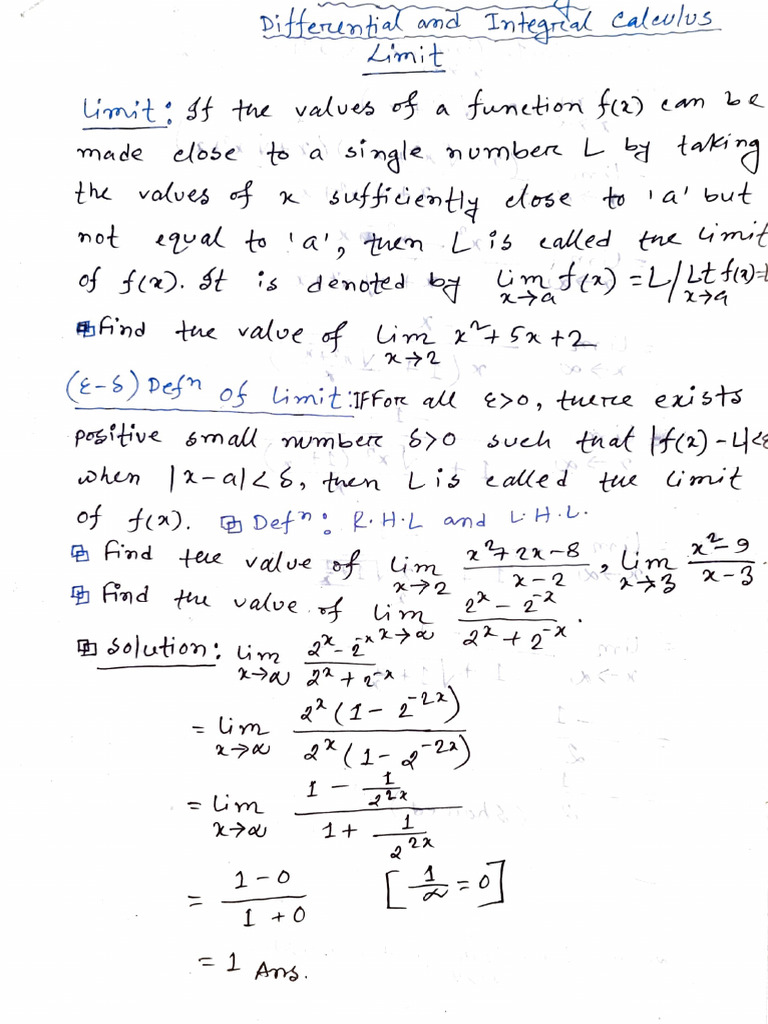 Differential and Integral Calculus
Limit
Limit: If the values of a function f(x) can be
made close to a single number L by taking
the values of x sufficiently close to 'a' but
not equal to 'a', then L is called the limit
of f(x). It is denoted by lim x→a f(x) = L / Lt x→a f(x)=L
Find the value of lim x→2 x²+5x+2
(ε-δ) Defⁿ of Limit: IF For all ε>0, there exists
positive small number δ>0 such that |f(x)-L|<ε
when |x-a|<δ, then L is called the limit
of f(x). Defⁿ: R.H.L and L.H.L.
Find the value of lim x→2 (x²+2x-8)/(x-2), lim x→3 (x²-9)/(x-3).
Find the value of lim x→∞ (2ˣ-2⁻ˣ)/(2ˣ+2⁻ˣ).
Solution: lim x→∞ (2ˣ-2⁻ˣ)/(2ˣ+2⁻ˣ)
= lim x→∞ 2ˣ(1-2⁻²ˣ)/2ˣ(1-2⁻²ˣ)
= lim x→∞ (1 - 1/2²ˣ)/(1 + 1/2²ˣ)
= (1-0)/(1+0) [1/∞ = 0]
= 1 Ans.